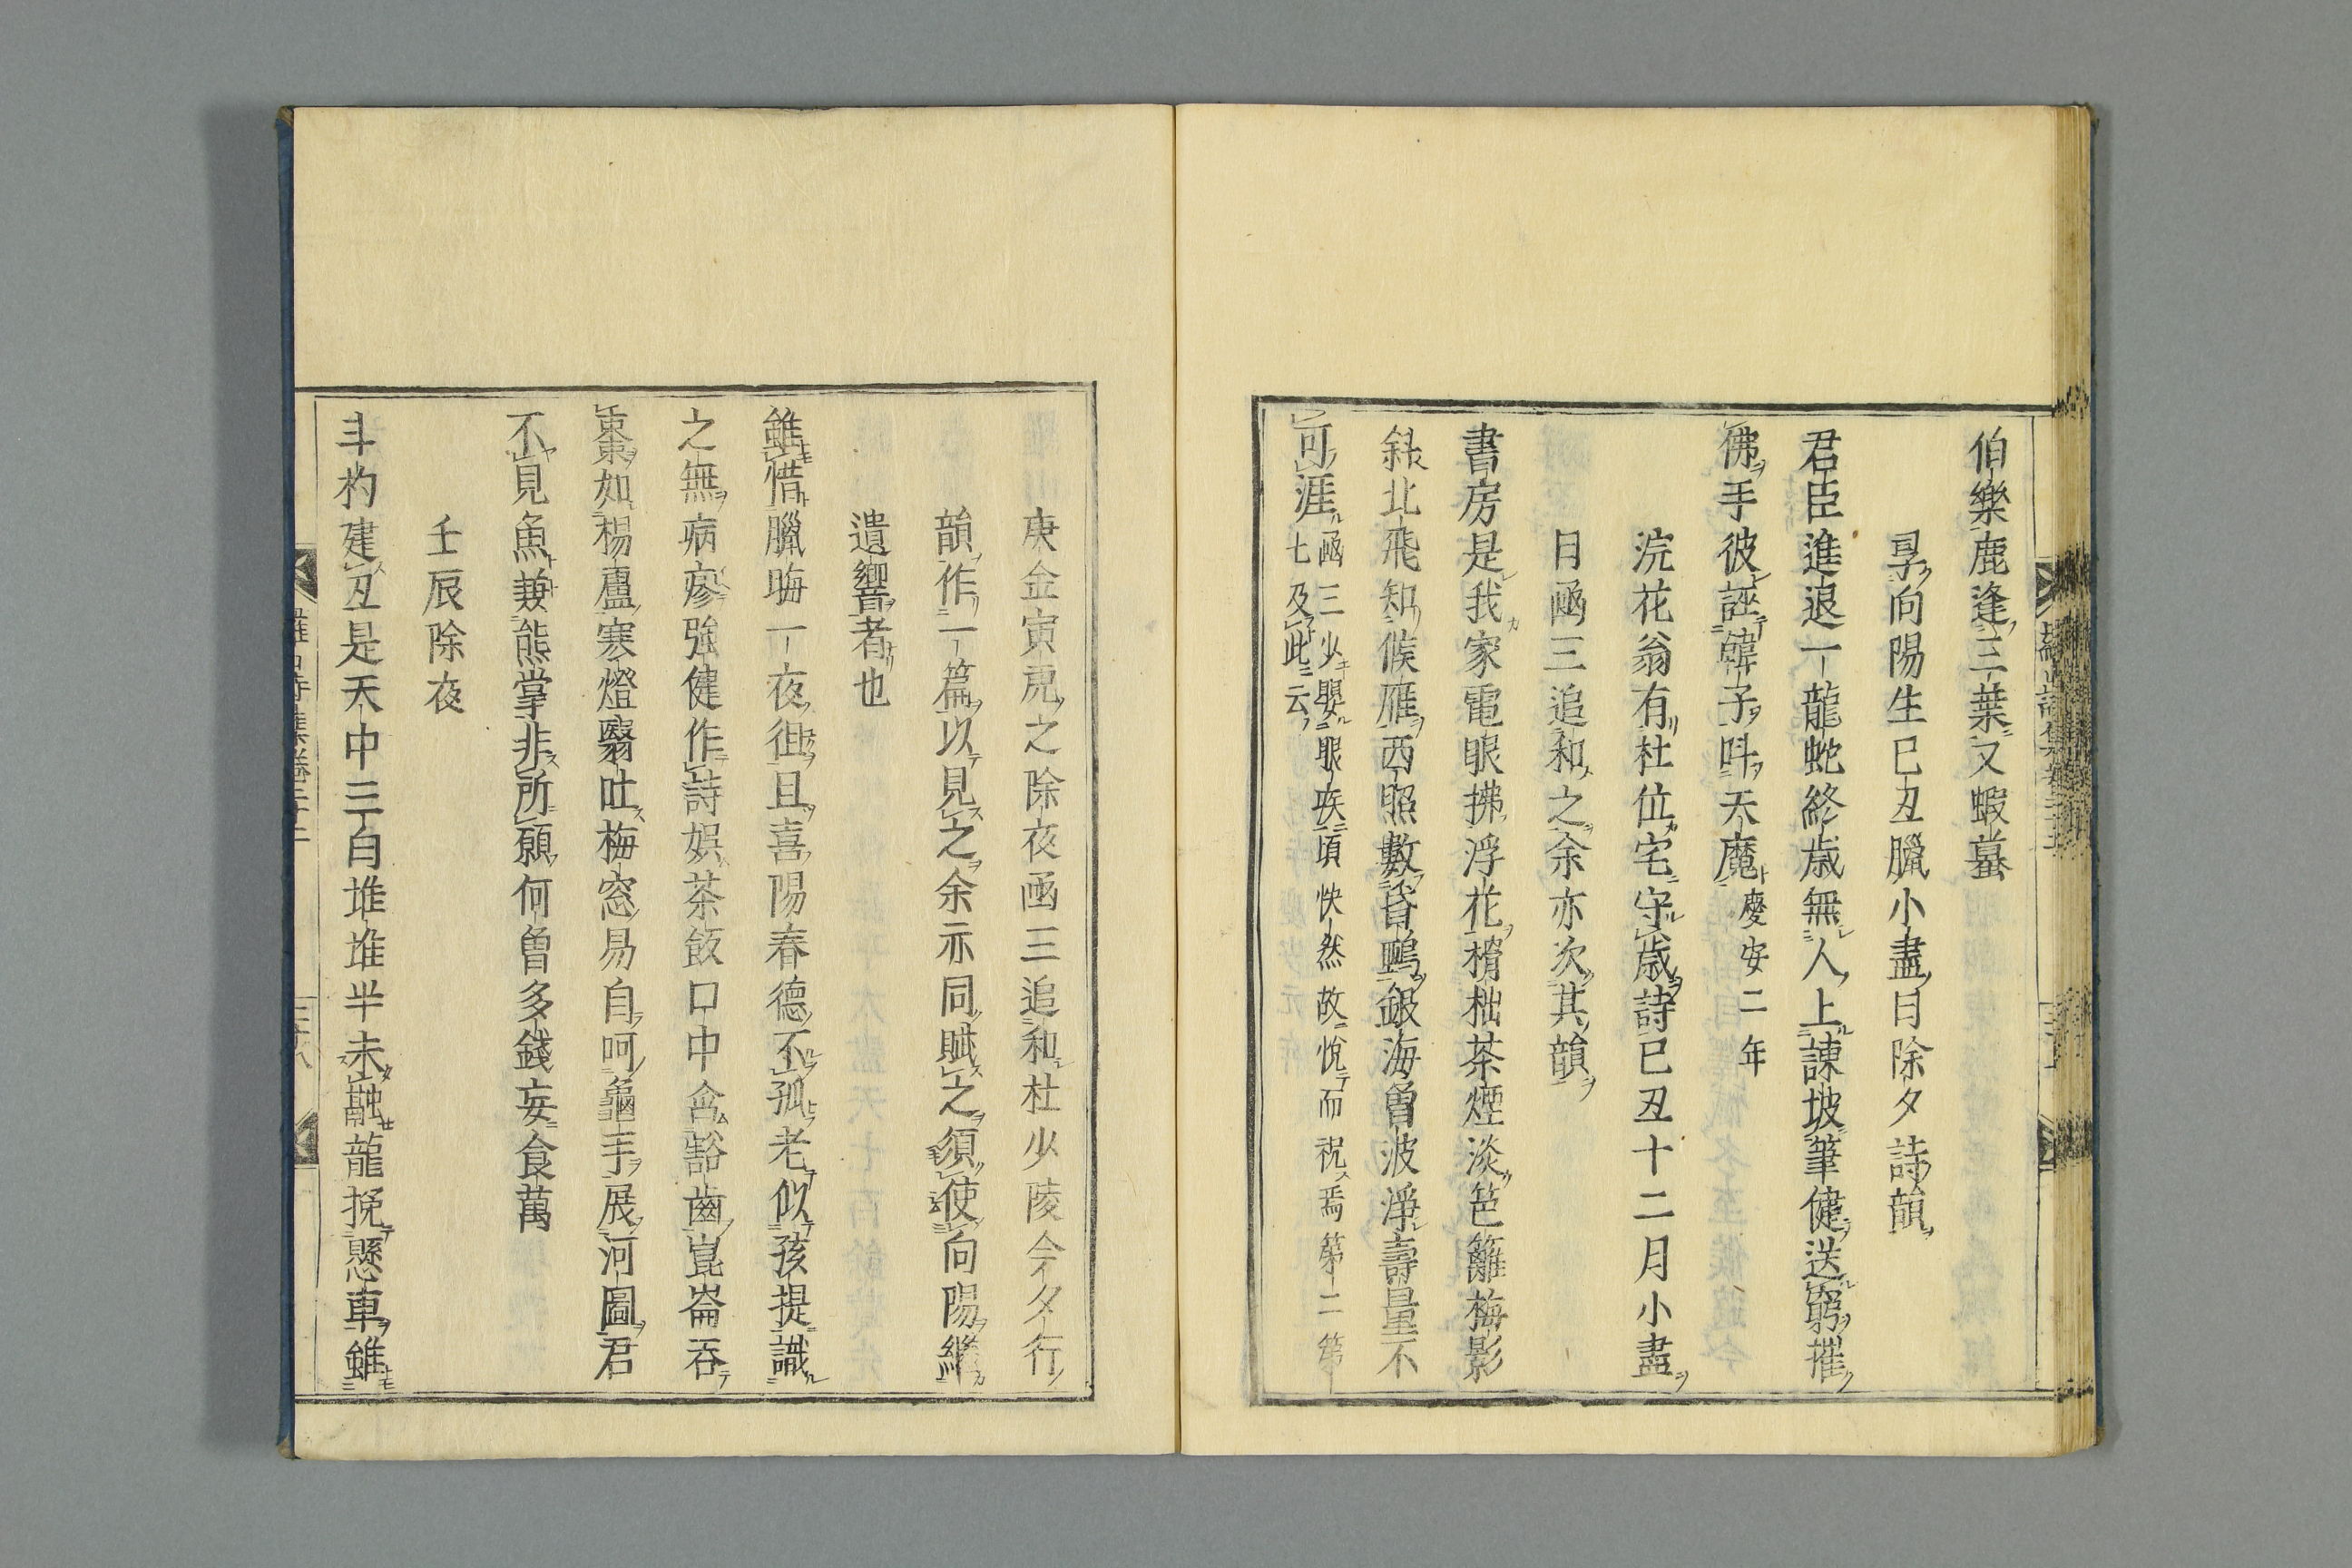 伯樂鹿逢三葉又蝦蟇
㝵向陽生己丑臘小盡日除夕詩韻
君臣進退一龍蛇終歳無人上諫坡筆健送窮摧
佛手彼誣韓子呌天魔慶安二年
浣花翁有杜位宅守歳詩已丑十二月小盡
日凾三追和之余亦次其韻
書房是我家電眼拂浮花榾柮茶煙淡笆籬梅影
斜北飛知候雁西照數昏鴉銀海曽波淨壽量不
可涯凾三少嬰眼疾頃快然故悅而祝焉第二第
七及此云
庚金寅虎之除夜凾三追和杜少陵今夕行
韻作一篇以見之余亦同賦之須使向陽繼
遺響者也
雖惜臘晦一夜徂且喜陽春德不孤老似孩提識
之無病瘳強健作詩娯茶飯口中含豁齒崑崙吞
棗如楊盧寒燈翳吐梅窓易自呵龜手展河圖君
不見魚兼熊掌非所願何曽多錢妄食萬
壬辰除夜
斗杓建丑是天中三白堆堆半未融龍挽懸車雖